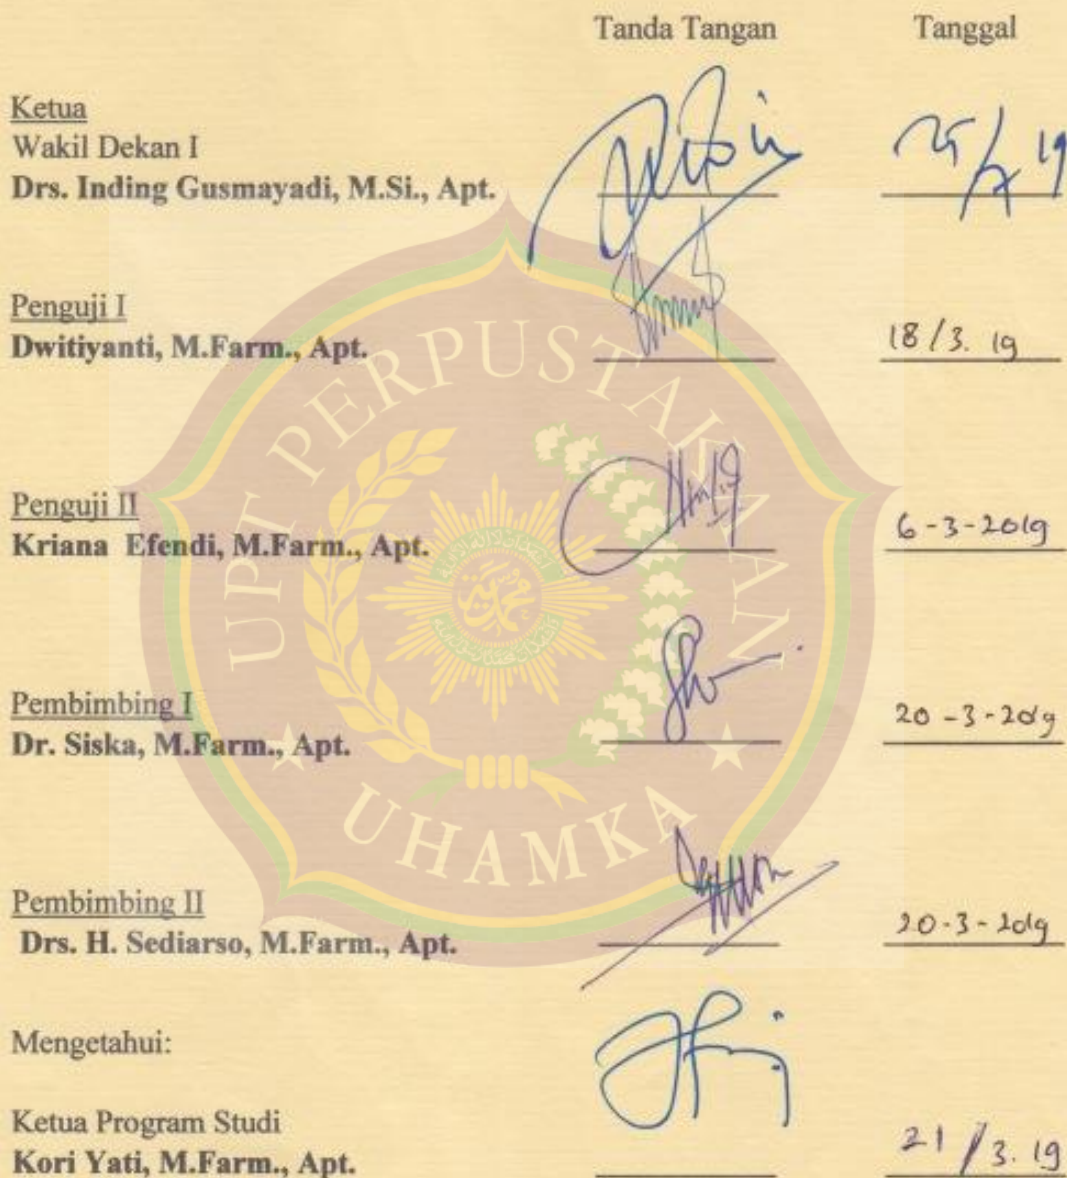 Tanda Tangan Tanggal
Ketua
Wakil Dekan I
Drs. Inding Gusmayadi, M.Si., Apt.
Penguji I
Dwitiyanti, M.Farm., Apt. 18/3. 19
Penguji II
Kriana Efendi, M.Farm., Apt. 6-3-2019
Pembimbing I
Dr. Siska, M.Farm., Apt. 20-3-2019
Pembimbing II
Drs. H. Sediarso, M.Farm., Apt. 20-3-2019
Mengetahui:
Ketua Program Studi
Kori Yati, M.Farm., Apt. 21/3. 19
UPT PERPUSTAKAAN
UHAMKA